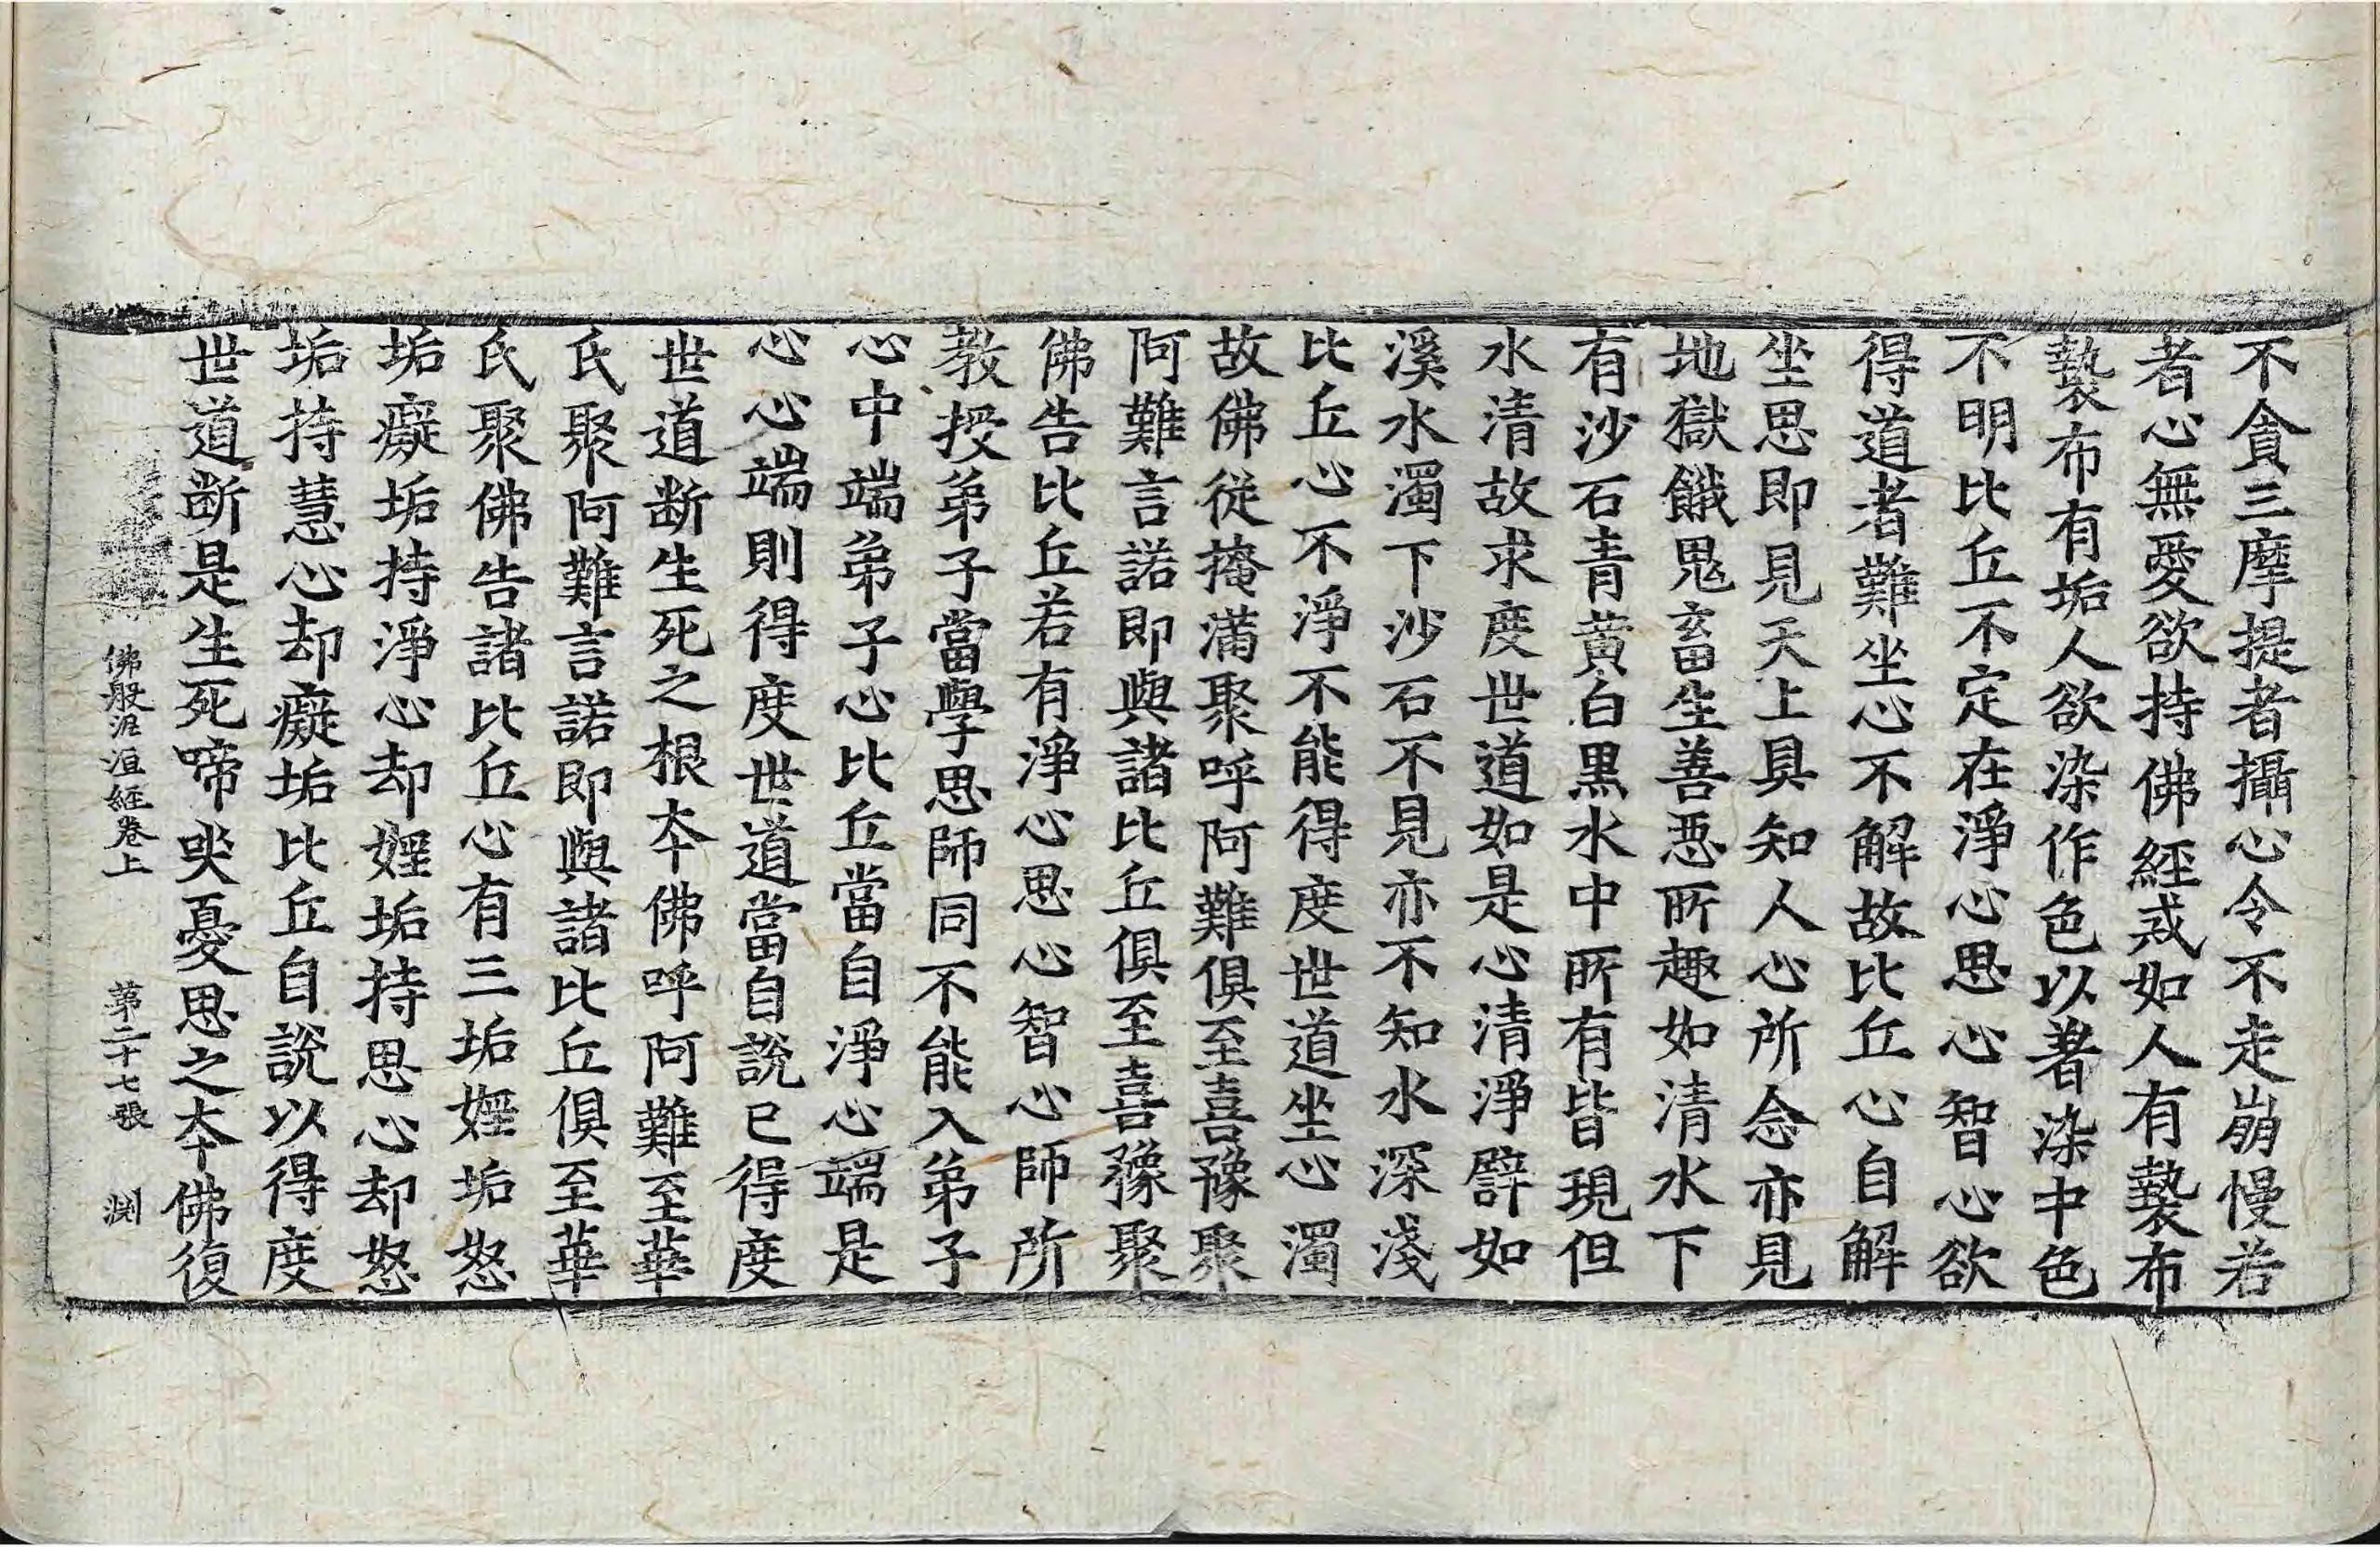 不貪三摩提者攝心令不走崩慢若
者心無愛欲持佛經戒如人有褺布
褺布有垢人欲染作色以著染中色
不明比丘不定在淨心思心智心欲
得道者難坐心不解故比丘心自解
坐思即見天上具知人心所念亦見
地獄餓鬼畜生善惡所趣如清水下
有沙石青黃白黑水中所有皆現但
水清故求度世道如是心清淨譬如
溪水濁下沙石不見亦不知水深淺
比丘心不淨不能得度世道坐心濁
故佛從掩滿聚呼阿難俱至喜豫聚
阿難言諾即與諸比丘俱至喜豫聚
佛告比丘若有淨心思心智心師所
教授弟子當學思師同不能入弟子
心中端弟子心比丘當自淨心端是
心心端則得度世道當自說已得度
世道断生死之根本佛呼阿難至華
氏聚阿難言諾即與諸比丘俱至華
氏聚佛告諸比丘心有三垢婬垢怒
垢癡垢持淨心却婬垢持思心却怒
垢持慧心却癡垢比丘自說以得度
世道断是生死啼哭憂思之本佛復
佛般泥洹経卷上 第二十七張 渕